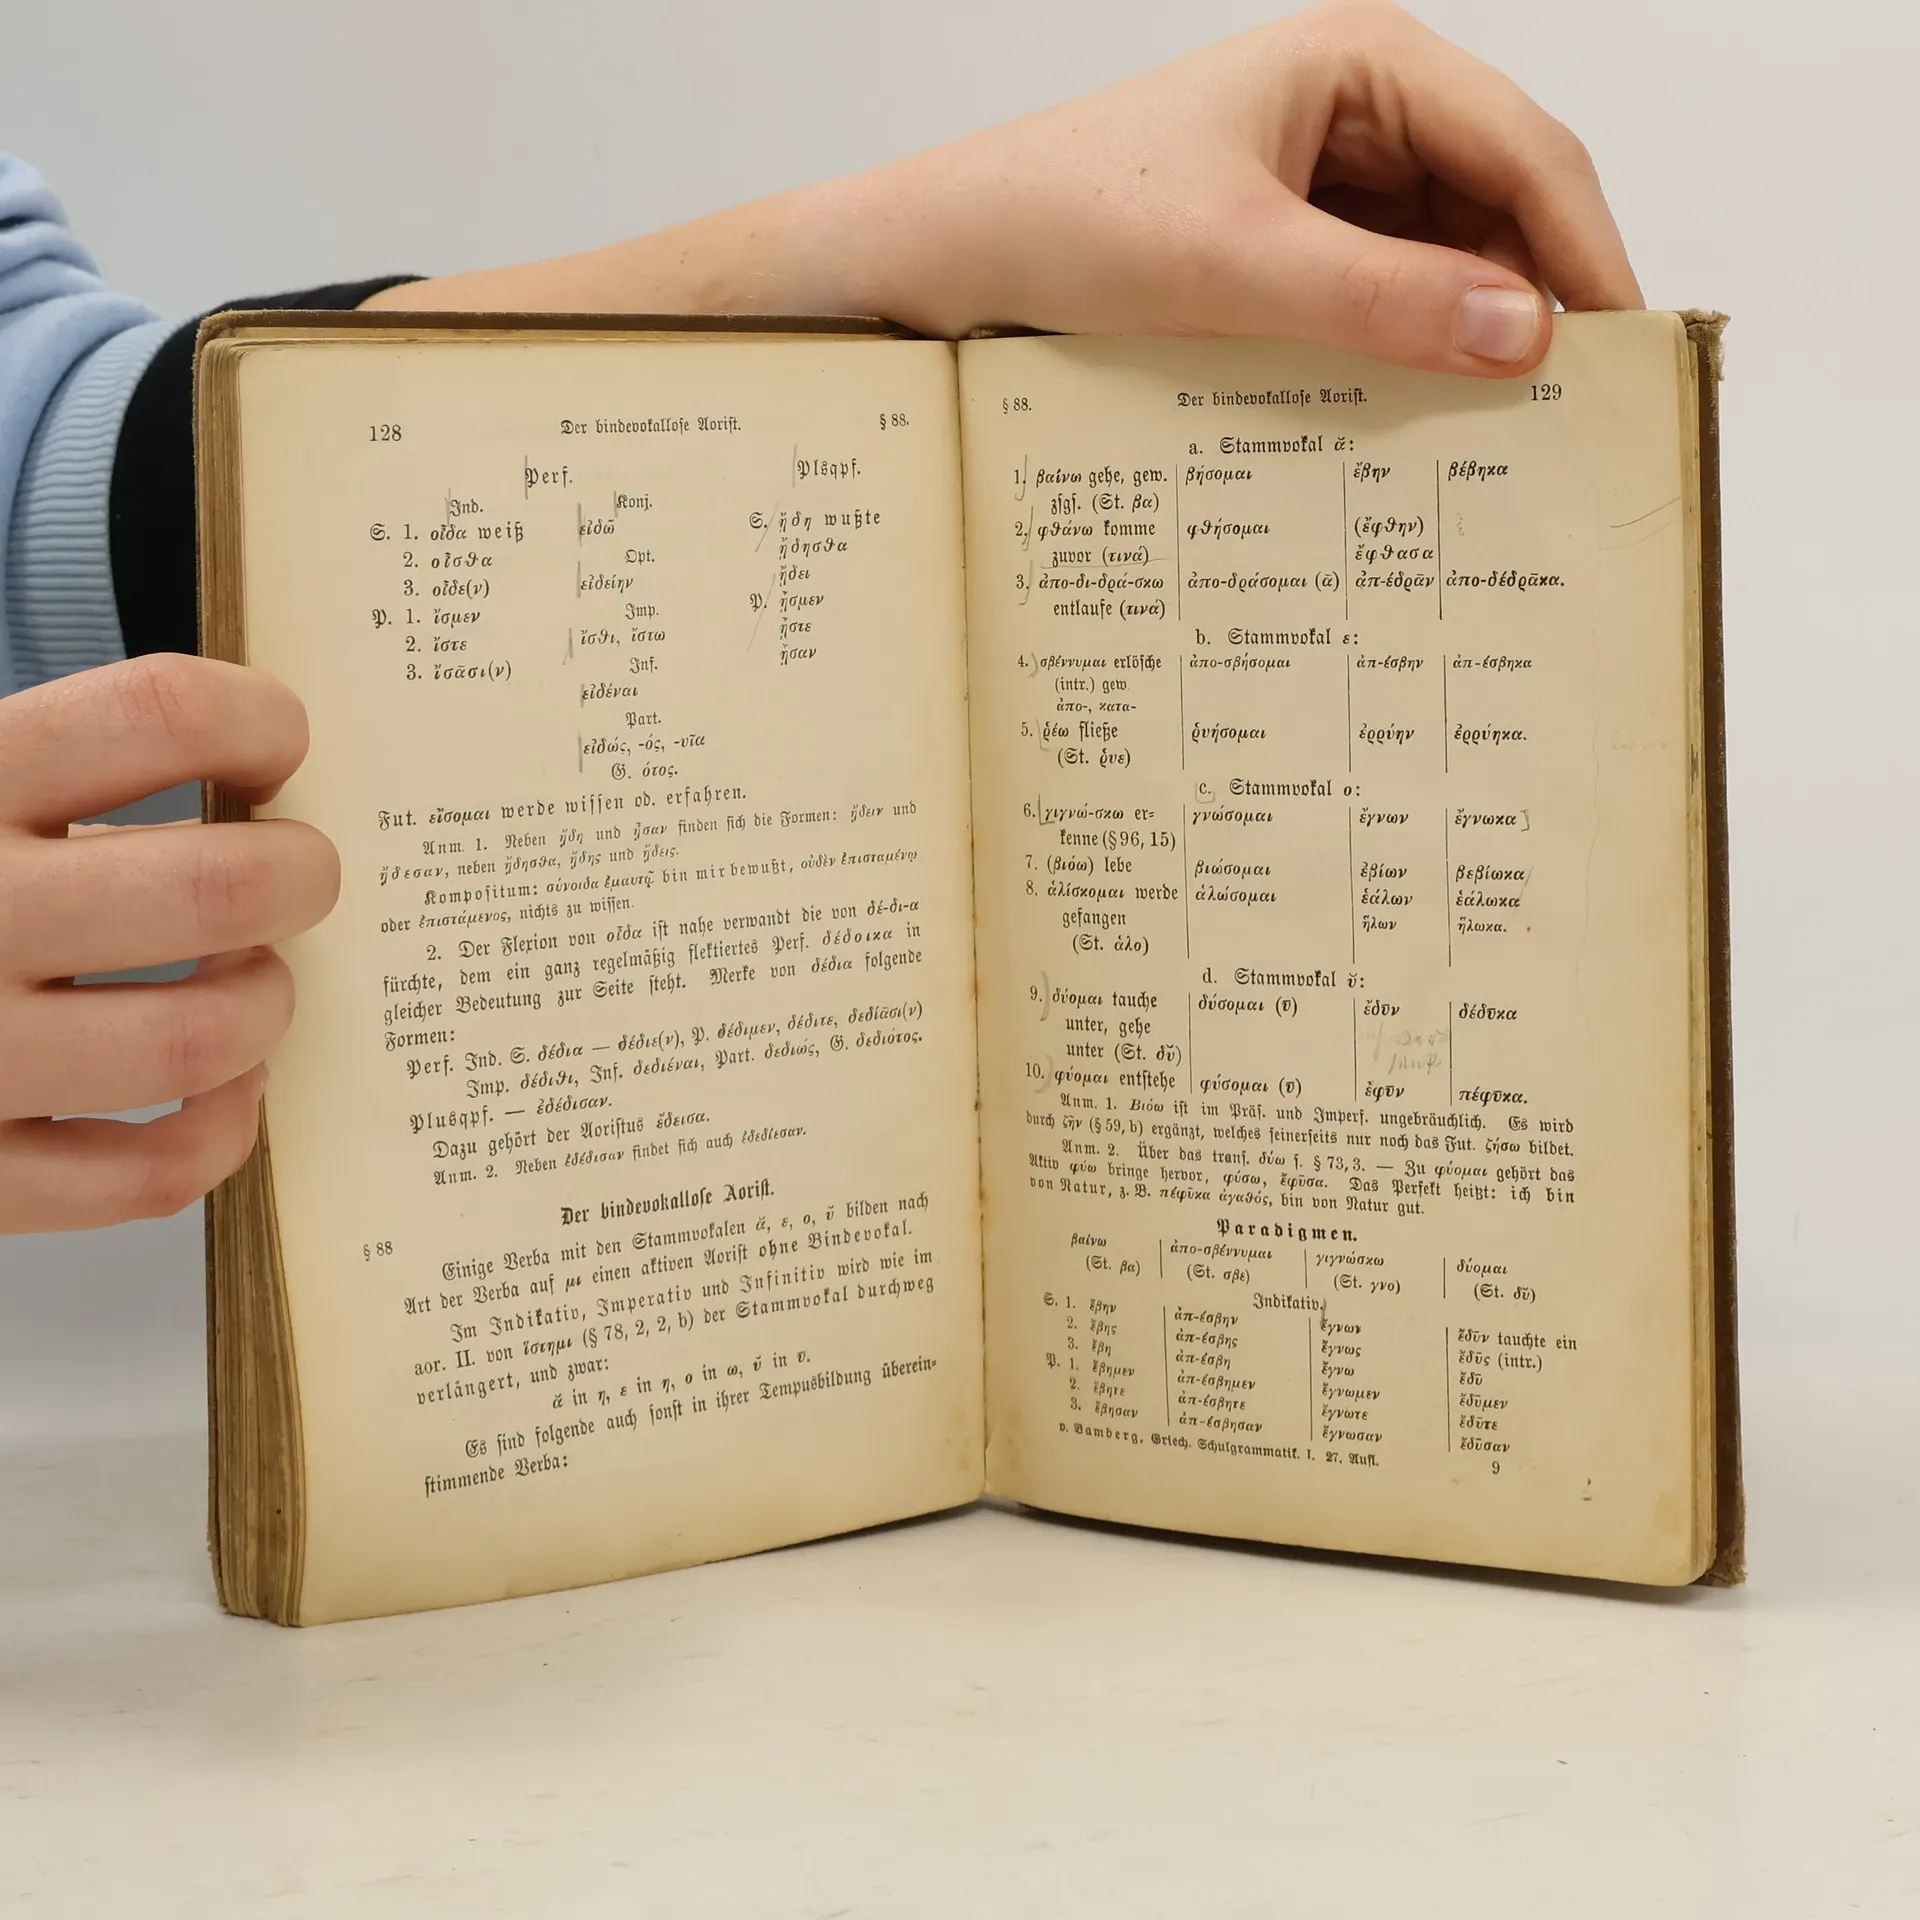 128 Der bindevokallose Aorist. § 88.
Perf. Plsqpf.
Ind. Konj.
S. 1. οἶδα weiß εἰδῶ S. ᾔδη wußte
2. οἶσθα Opt. ᾔδησθα
3. οἶδε(ν) εἰδείην ᾔδει
P. 1. ἴσμεν Imp. P. ᾖσμεν
2. ἴστε ἴσθι, ἴστω ᾖστε
3. ἴσᾱσι(ν) Inf. ᾖσαν
εἰδέναι
Part.
εἰδώς, -ός, -υῖα
G. ότος.
Fut. εἴσομαι werde wissen od. erfahren.
Anm. 1. Neben ᾔδη und ᾖσαν finden sich die Formen: ᾔδειν und
ᾔδεσαν, neben ᾔδησθα, ᾔδης und ᾔδεις.
Kompositum: σύνοιδα ἐμαυτῷ bin mir bewußt, οὐδὲν ἐπισταμένῳ
oder ἐπιστάμενος, nichts zu wissen.
2. Der Flexion von οἶδα ist nahe verwandt die von δέ-δι-α
fürchte, dem ein ganz regelmäßig flektiertes Perf. δέδοικα in
gleicher Bedeutung zur Seite steht. Merke von δέδια folgende
Formen:
Perf. Ind. S. δέδια — δέδιε(ν), P. δέδιμεν, δέδιτε, δεδίᾱσι(ν)
Imp. δέδιθι, Inf. δεδιέναι, Part. δεδιώς, G. δεδιότος.
Plusqpf. — ἐδέδισαν.
Dazu gehört der Aoristus ἔδεισα.
Anm. 2. Neben ἐδέδισαν findet sich auch ἐδεδίεσαν.
Der bindevokallose Aorist.
§ 88 Einige Verba mit den Stammvokalen ᾰ, ε, ο, ῠ bilden nach
Art der Verba auf μι einen aktiven Aorist ohne Bindevokal.
Im Indikativ, Imperativ und Infinitiv wird wie im
aor. II. von ἵστημι (§ 78, 2, 2, b) der Stammvokal durchweg
verlängert, und zwar:
ᾰ in η, ε in η, ο in ω, ῠ in ῡ.
Es sind folgende auch sonst in ihrer Tempusbildung überein-
stimmende Verba:
§ 88. Der bindevokallose Aorist. 129
a. Stammvokal ᾰ:
1. βαίνω gehe, gew. βήσομαι ἔβην βέβηκα
zsgs. (St. βα)
2. φθάνω komme φθήσομαι (ἔφθην)
zuvor (τινά) ἔφθασα
3. ἀπο-δι-δρά-σκω ἀπο-δράσομαι (ᾱ) ἀπ-έδρᾱν ἀπο-δέδρᾱκα.
entlaufe (τινά)
b. Stammvokal ε:
4. σβέννυμαι erlösche ἀπο-σβήσομαι ἀπ-έσβην ἀπ-έσβηκα
(intr.) gew.
ἀπο-, κατα-
5. ῥέω fließe ῥυήσομαι ἐρρύην ἐρρύηκα.
(St. ῥυε)
c. Stammvokal ο:
6. γιγνώ-σκω er- γνώσομαι ἔγνων ἔγνωκα
kenne (§ 96, 15)
7. (βιόω) lebe βιώσομαι ἐβίων βεβίωκα
8. ἁλίσκομαι werde ἁλώσομαι ἑάλων ἑάλωκα
gefangen ἥλων ἥλωκα.
(St. ἁλο)
d. Stammvokal ῠ:
9. δύομαι tauche δύσομαι (ῡ) ἔδῡν δέδῡκα
unter, gehe
unter (St. δῠ)
10. φύομαι entstehe φύσομαι (ῡ) ἔφῡν πέφῡκα.
Anm. 1. Βιόω ist im Präs. und Imperf. ungebräuchlich. Es wird
durch ζῆν (§ 59, b) ergänzt, welches seinerseits nur noch das Fut. ζήσω bildet.
Anm. 2. Über das trans. δύω s. § 73, 3. — Zu φύομαι gehört das
Aktiv φύω bringe hervor, φύσω, ἔφῡσα. Das Perfekt heißt: ich bin
von Natur, z. B. πέφῡκα ἀγαθός, bin von Natur gut.
Paradigmen.
βαίνω ἀπο-σβέννυμαι γιγνώσκω δύομαι
(St. βα) (St. σβε) (St. γνο) (St. δῠ)
Indikativ.
S. 1. ἔβην ἀπ-έσβην ἔγνων ἔδῡν tauchte ein
2. ἔβης ἀπ-έσβης ἔγνως ἔδῡς (intr.)
3. ἔβη ἀπ-έσβη ἔγνω ἔδῡ
P. 1. ἔβημεν ἀπ-έσβημεν ἔγνωμεν ἔδῡμεν
2. ἔβητε ἀπ-έσβητε ἔγνωτε ἔδῡτε
3. ἔβησαν ἀπ-έσβησαν ἔγνωσαν ἔδῡσαν
v. Bamberg, Griech. Schulgrammatik. I. 27. Aufl. 9